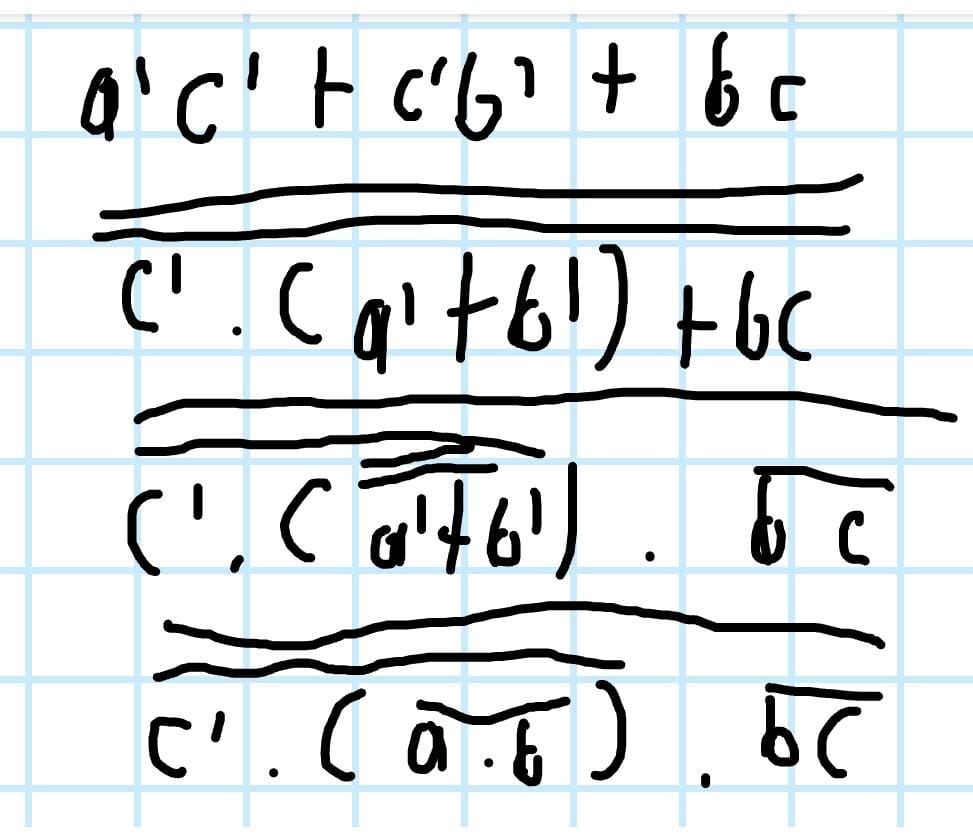 a'c' + c'b' + bc
c' . (a' + b') + bc
c' . (a' + b') . bc
c' . (a . b) . bc